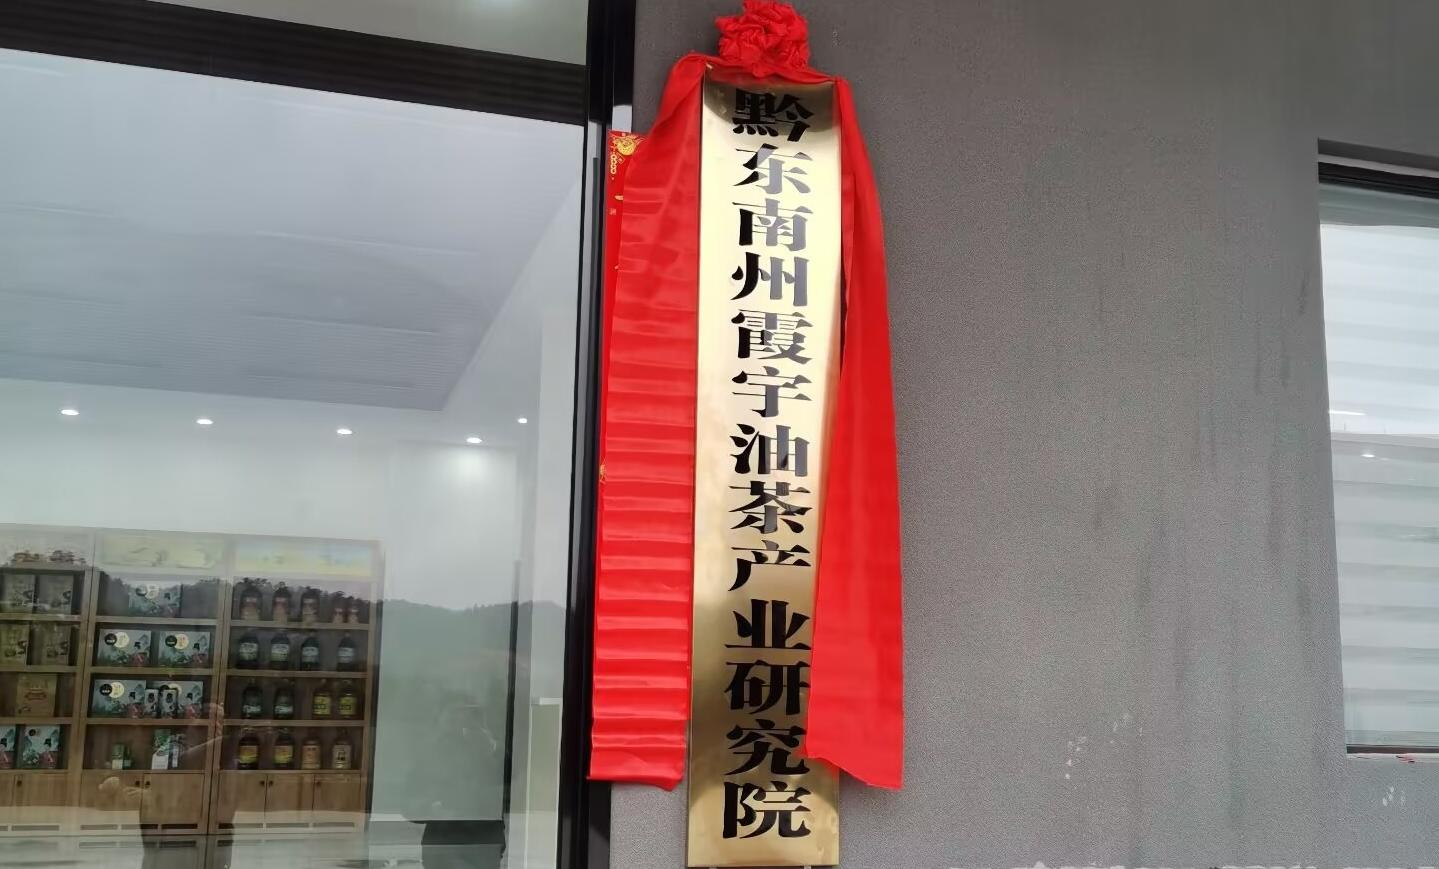 黔东南州霞宇油茶产业研究院